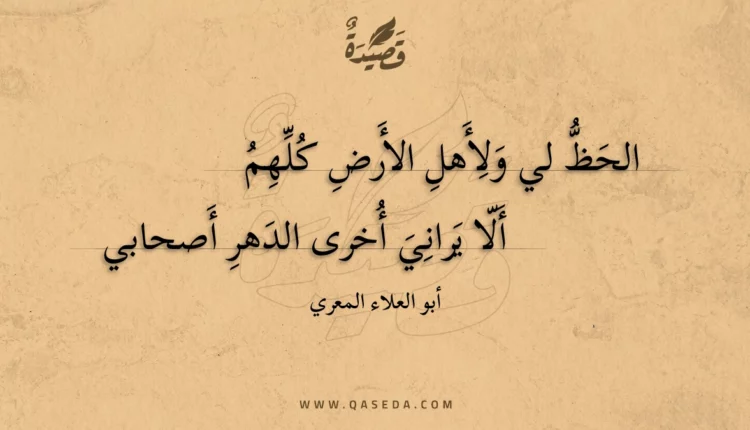 قَصِيْدَةٌ
الحَظُّ لي وَلِأَهلِ الأَرضِ كُلِّهِمُ
أَلّا يَرانِيَ أُخرى الدَهرِ أَصحابي
أبو العلاء المعري
WWW.QASEDA.COM